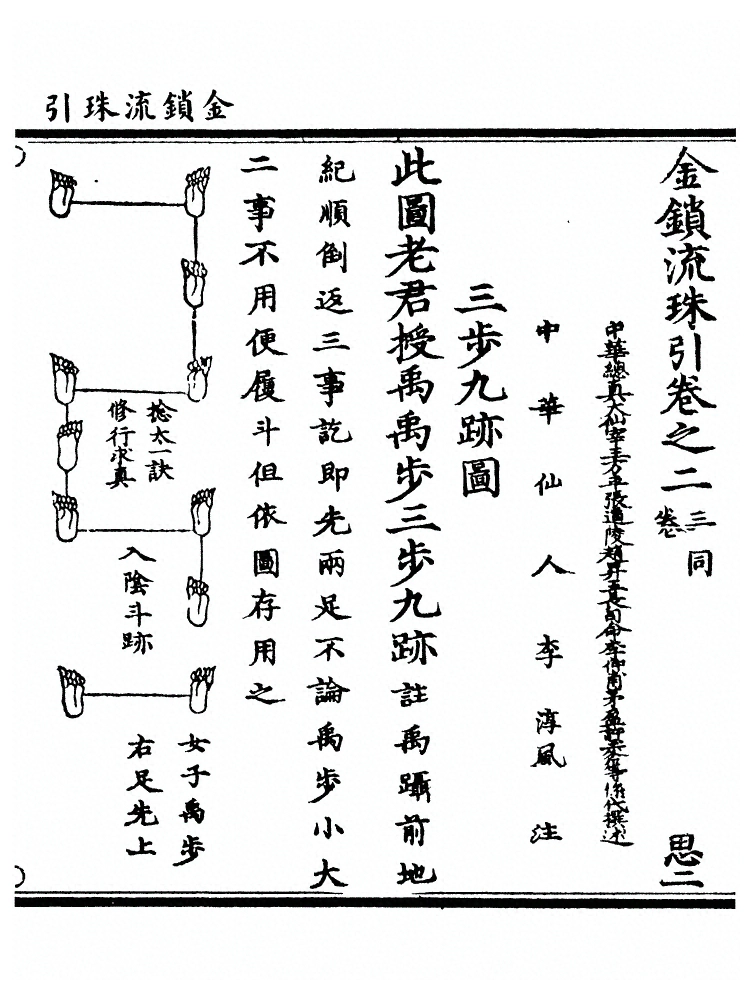 金鎖流珠引
金鎖流珠引卷之二 三同卷 思二
中華總真大仙宰王方平張道陵趙昇王長司命李仲甫茅盈許等係代撰述
中華仙人李淳風注
三步九跡圖
此圖老君授禹禹步三步九跡註禹躡前地
紀順倒返三事訖即先兩足不論禹步小大
二事不用便履斗但依圖存用之
捻太一訣
修行求真
入陰斗跡
女子禹步
右足先上